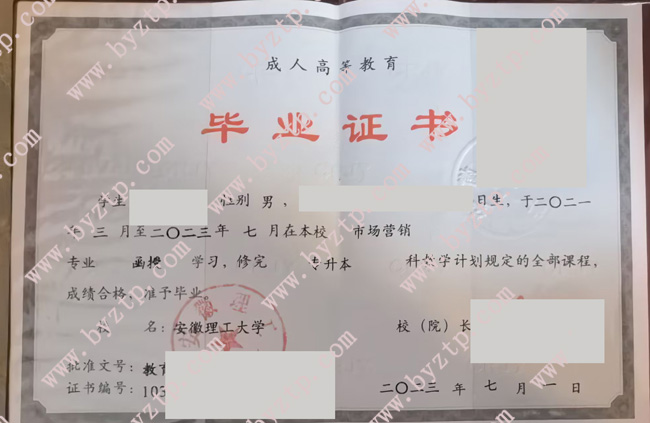 成人高等教育
毕业证书
学生 性别 男， 日生，于二〇二一
年 三 月至二〇二三年 七 月在本校 市场营销
专业 函授 学习，修完 专升本 科教学计划规定的全部课程，
成绩合格，准予毕业。
校 名：安徽理工大学 校（院）长
批准文号：教育
证书编号：103
二〇二三年 七 月 一 日
www.byztp.com